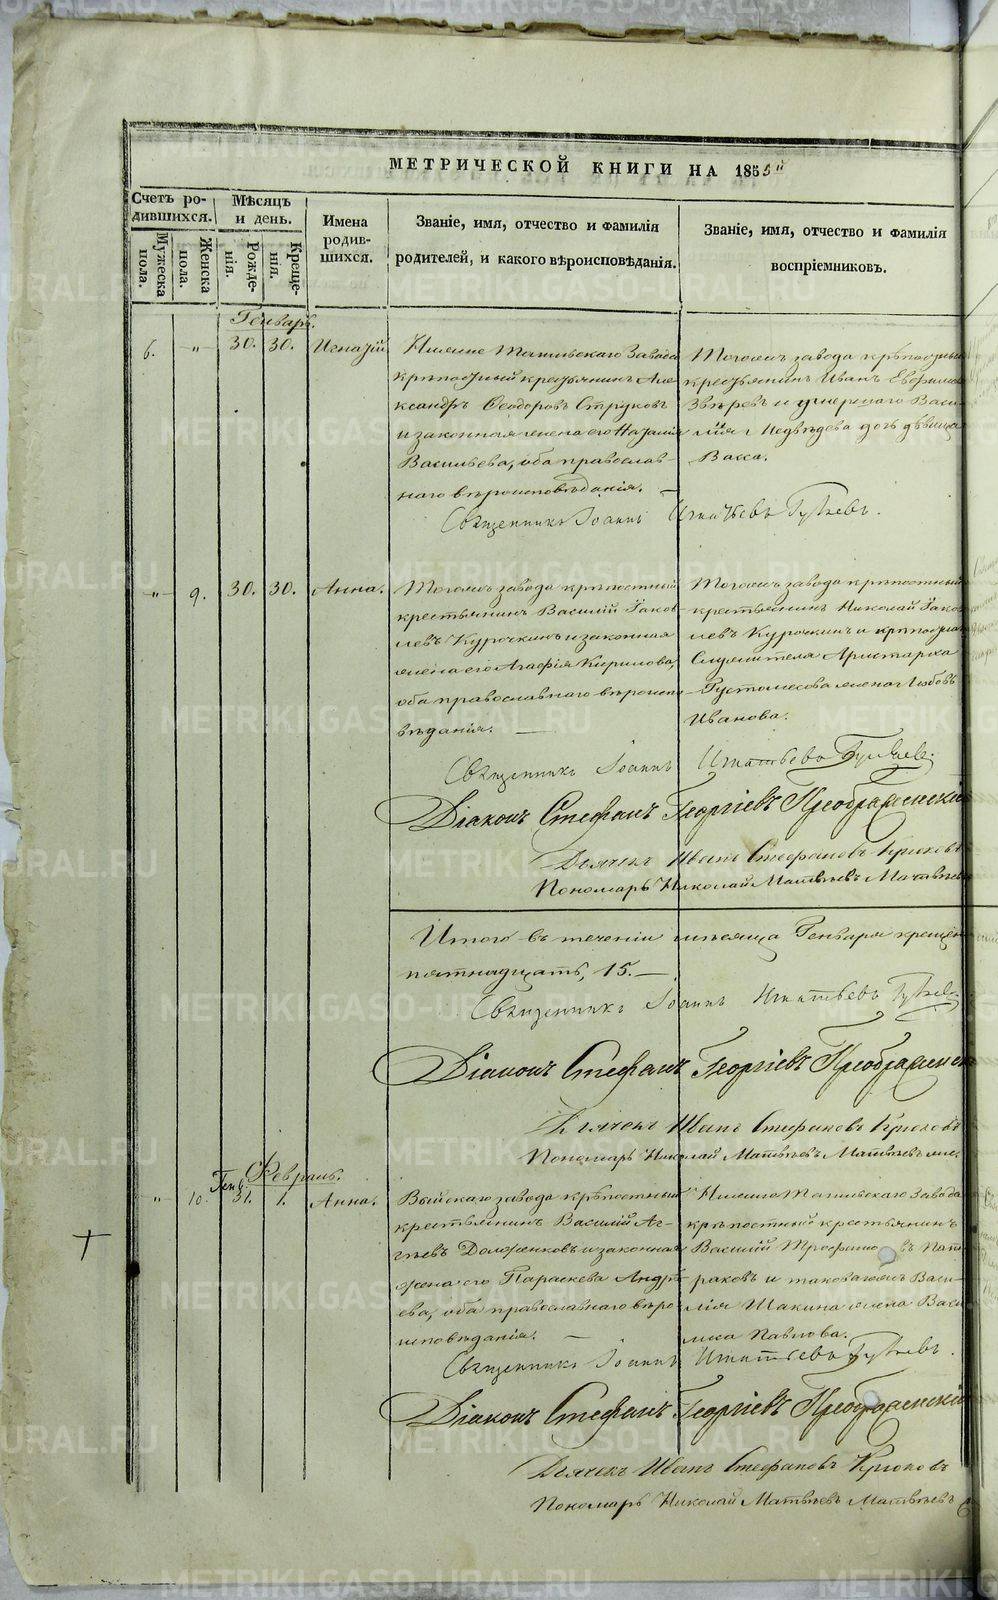 МЕТРИЧЕСКОЙ КНИГИ НА 1855й
Счетъ ро-
дившихся.
Мужеска
пола.
Женска
пола.
Мѣсяцъ
и день.
Рожде-
нія.
Креще-
нія.
Имена
родив-
шихся.
Званіе, имя, отчество и фамилія
родителей, и какого вѣроисповѣданія.
Званіе, имя, отчество и фамилія
воспріемниковъ.
Генварь.
6. „ 30. 30. Игнатій
Нижне Тагильскаго Завода
крѣпостный крестьянинъ Але-
ксандръ Ѳеодоровъ Струковъ
и законная жена его Наталія
Васильева, оба православ-
наго вѣроисповѣданія. —
Тогожъ завода крѣпостный
крестьянинъ Иванъ Евфимовъ
Звѣревъ и умершаго Васи-
лія Медвѣдева дочь дѣвица
Васса.
Священникъ Іоаннъ Игнатьевъ
„ 9. 30. 30. Анна.
Тогожъ завода крѣпостный
крестьянинъ Василій Іаков-
левъ Курочкинъ и законная
жена его Агафія Кирилова,
оба православнаго вѣроиспо-
вѣданія. —
Тогожъ завода крѣпостный
крестьянинъ Николай Іаков-
левъ Курочкинъ и
Служителя Аристарха
Густомесова жена Любовь
Иванова.
Священникъ Іоаннъ Игнатьевъ
Діаконъ Стефанъ Георгіевъ Преображенскій
Дьячекъ Иванъ Стефановъ Крюковъ
Пономарь Николай Матвѣевъ Матвѣевъ
Итого въ теченіи мѣсяца Генваря крещено
пятнадцать, 15. —
Священникъ Іоаннъ Игнатьевъ
Діаконъ Стефанъ Георгіевъ Преображенскій
Дьячекъ Иванъ Стефановъ Крюковъ
Пономарь Николай Матвѣевъ Матвѣевъ
Февраль.
Генв.
„ 10. 31. 1. Анна.
Выйскаго завода крѣпостный
крестьянинъ Василій Аг-
гѣевъ Долженковъ и законная
жена его Параскева Андрѣ-
ева, оба православнаго вѣро-
исповѣданія. —
Нижне Тагильскаго Завода
крѣпостный крестьянинъ
Василій Трофимовъ
и таковагожъ Васи-
лія Шакина жена Васи-
лиса Павлова.
Священникъ Іоаннъ Игнатьевъ
Діаконъ Стефанъ Георгіевъ Преображенскій
Дьячекъ Иванъ Стефановъ Крюковъ
Пономарь Николай Матвѣевъ Матвѣевъ
METRIKI.GASO-URAL.RU